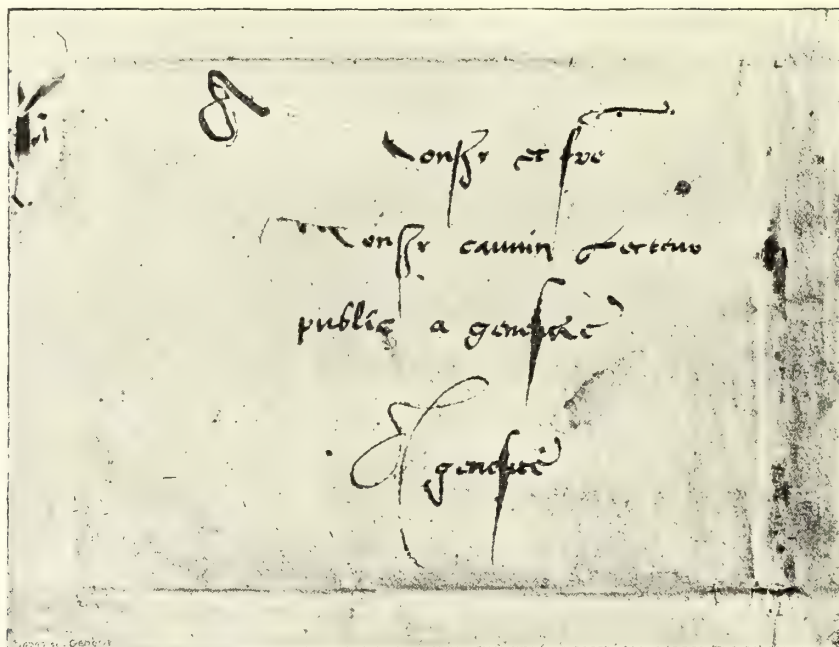 A
Monsr et fre
Monsr cauvin lecteur
public a geneve
A geneve